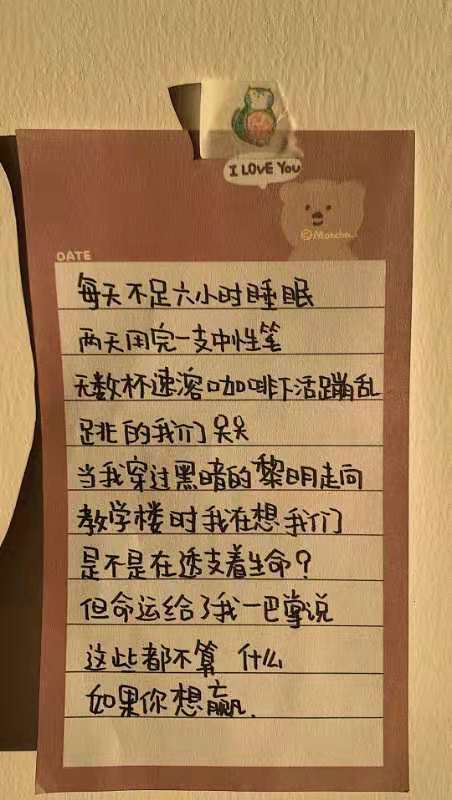 I LOVE YOU
©Matcha
DATE
每天不足六小时睡眠
两天用完一支中性笔
无数杯速溶咖啡下活蹦乱
跳的我们哭哭
当我穿过黑暗的黎明走向
教学楼时我在想我们
是不是在透支着生命?
但命运给了我一巴掌说
这些都不算 什么
如果你想赢.